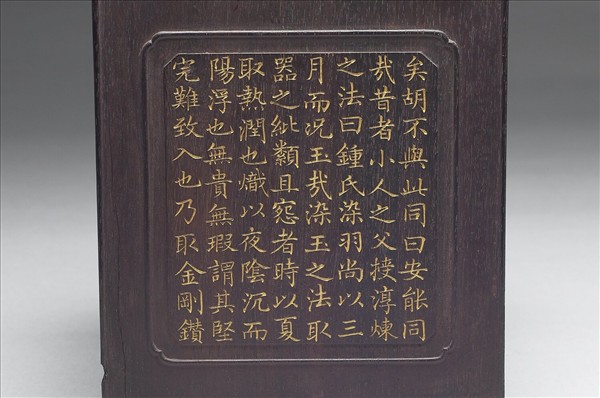 矣胡不與此同曰安能同
哉昔者小人之父授淳煉
之法曰鍾氏染羽尚以三
月而况玉哉染玉之法取
器之紕纇且者時以夏
取熱潤也熾以夜陰沉而
陽浮也無貴無瑕謂其堅
完難致入也乃取金剛鑽